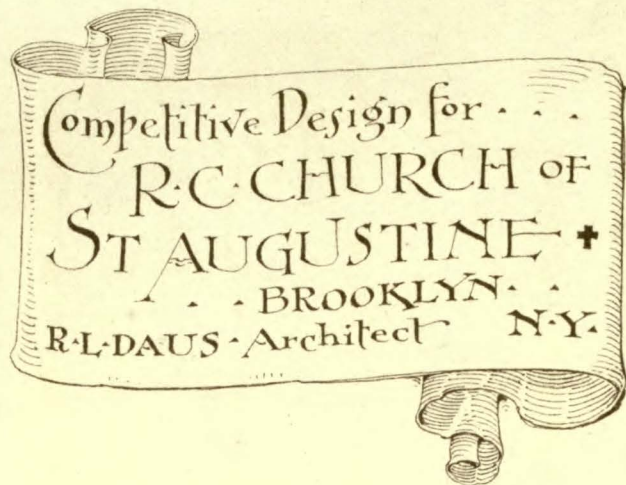 Competitive Design for . . .
R·C·CHURCH OF
ST AUGUSTINE ✝
. . BROOKLYN· .
R·L·DAUS · Architect N·Y·